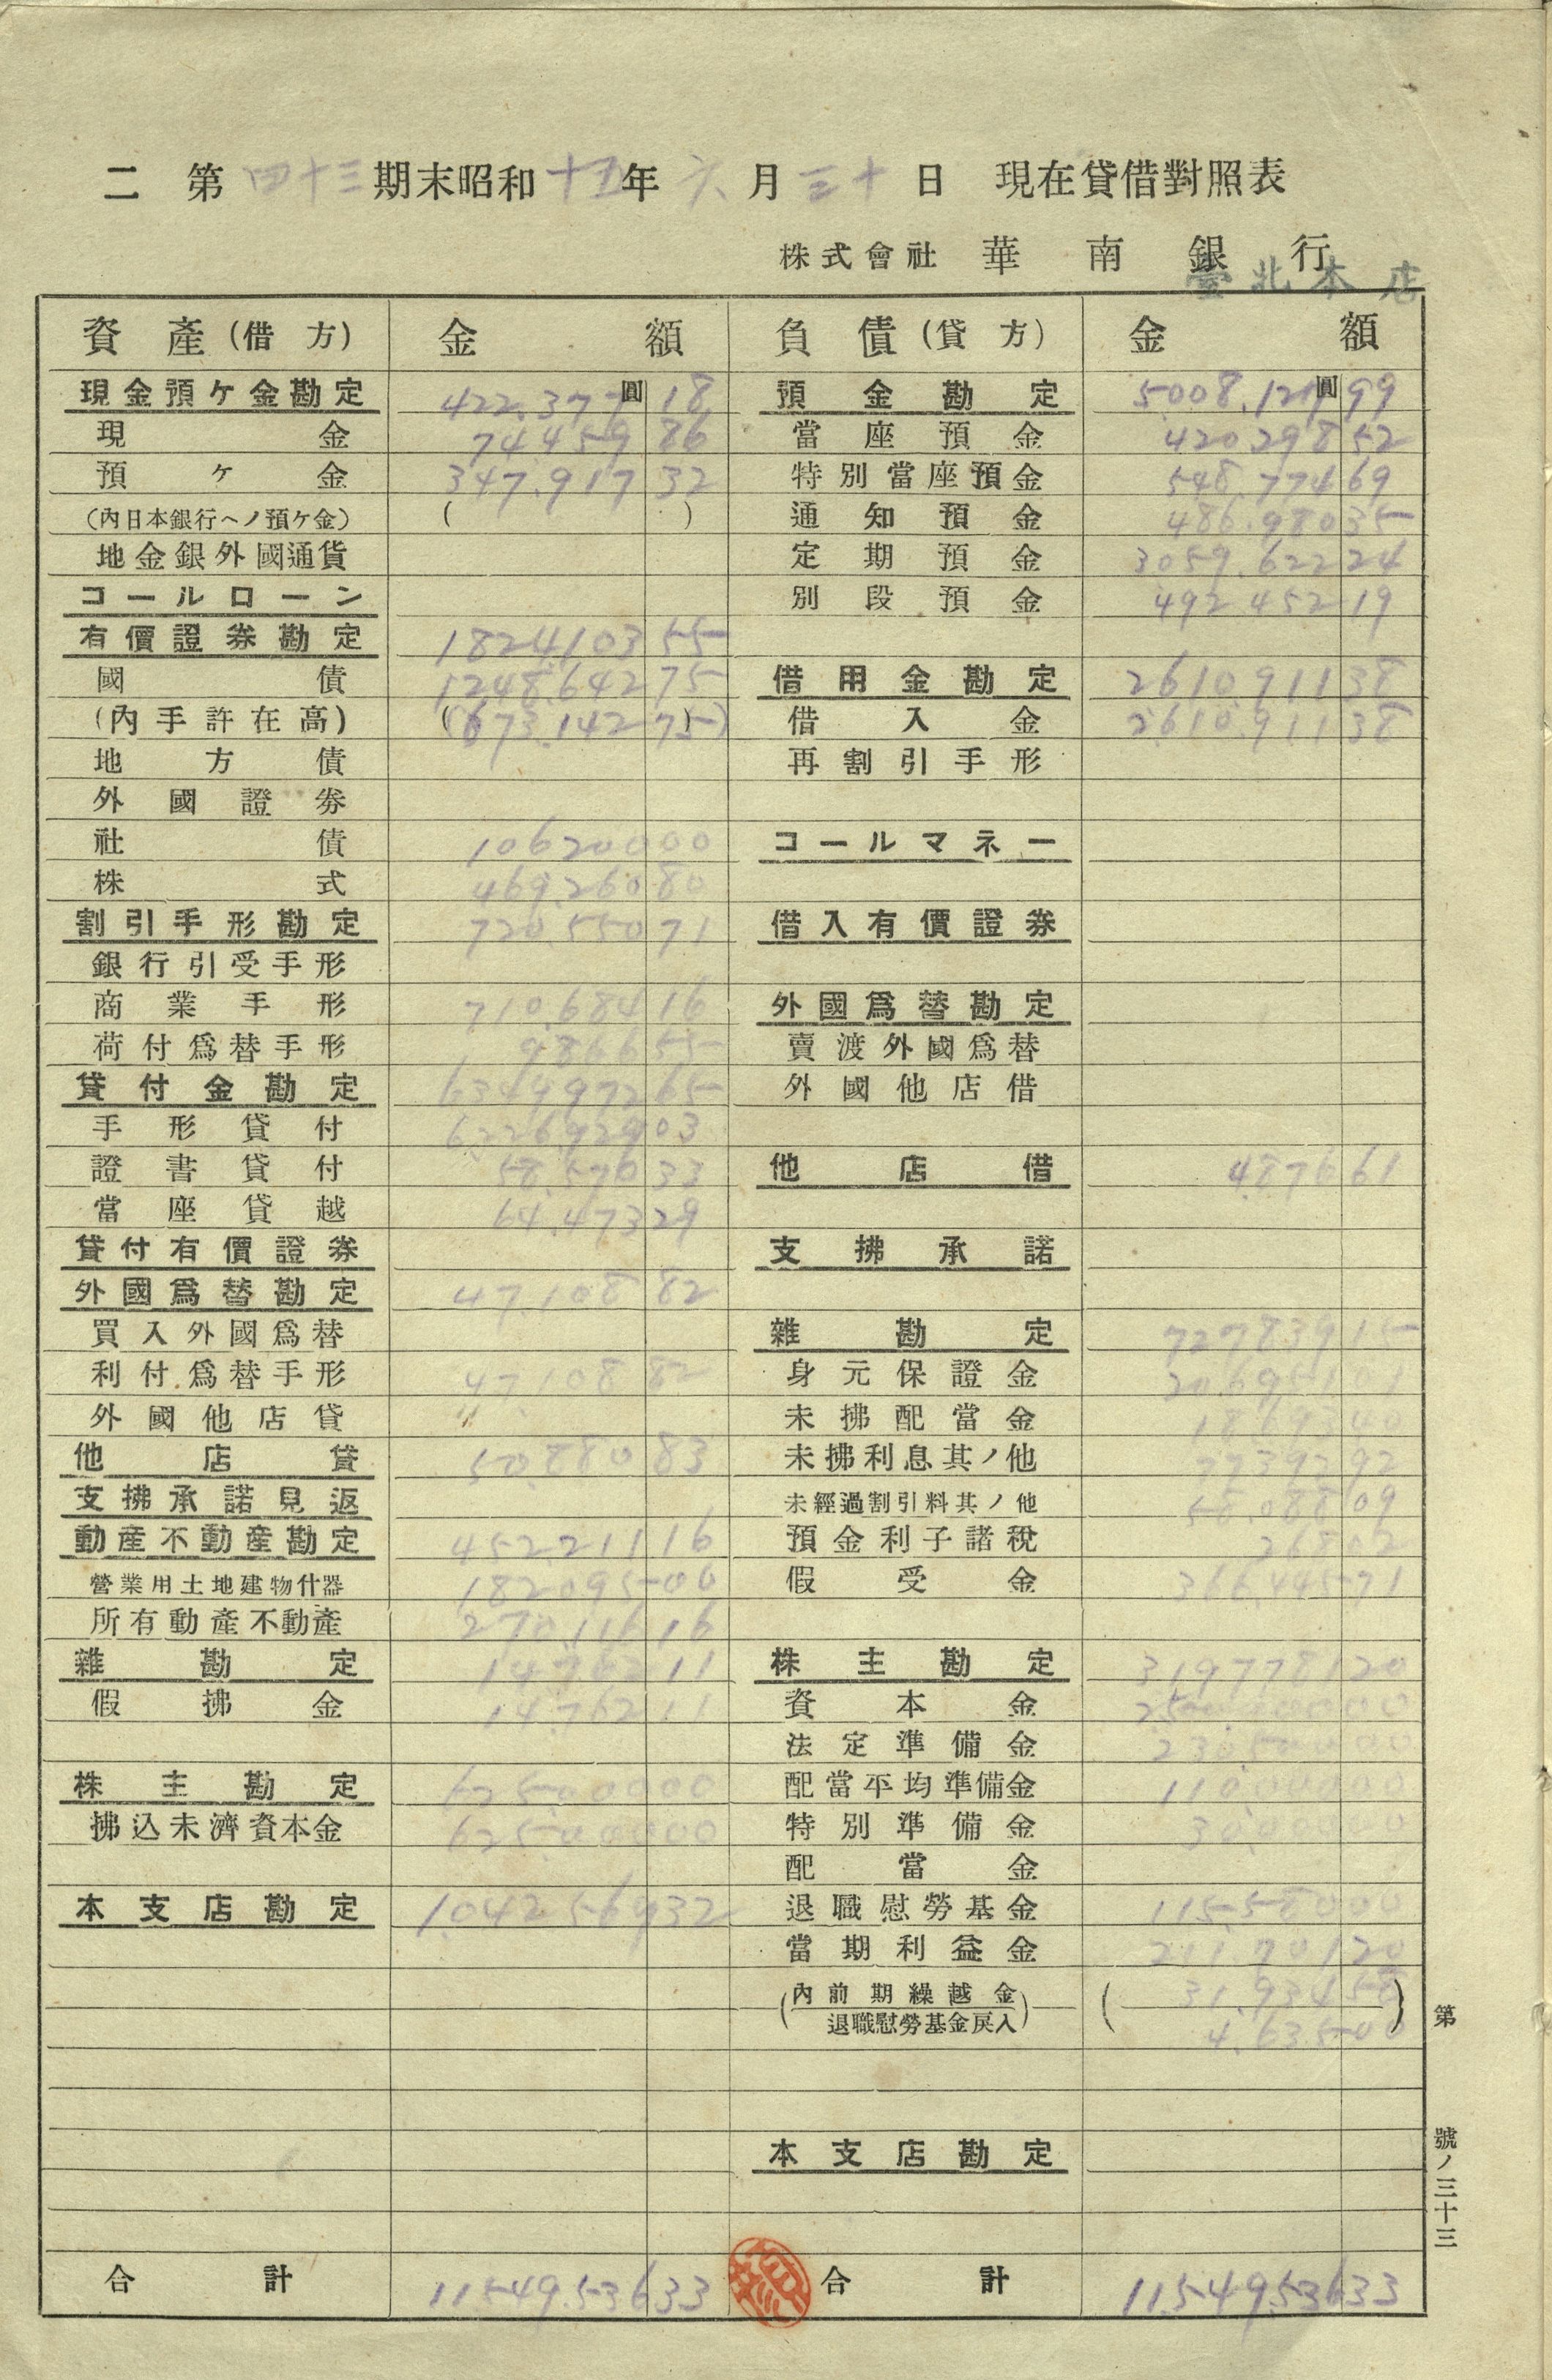 二 第四十三期末昭和十五年六月三十日 現在貸借對照表
株式會社 華南銀行
臺北本店
資產(借方) 金額 負債(貸方) 金額
現金預ケ金勘定 422.377圓18 預金勘定 5.008.127圓99
現金 74.459 86 當座預金 420.298 52
預ケ金 347.917 32 特別當座預金 548.774 69
(內日本銀行ヘノ預ケ金) ( ) 通知預金 486.980 35
地金銀外國通貨 定期預金 3.059.622 24
コールローン 別段預金 492.452 19
有價證券勘定 1.824.103 55
國債 1.248.642 75 借用金勘定 2.610.911 38
(內手許在高) (673.142 75) 借入金 2.610.911 38
地方債 再割引手形
外國證券
社債 106.200 00 コールマネー
株式 469.260 80
割引手形勘定 720.550 71 借入有價證券
銀行引受手形
商業手形 710.684 16 外國爲替勘定
荷付爲替手形 9.866 55 賣渡外國爲替
貸付金勘定 6.349.972 65 外國他店借
手形貸付 6.226.929 03
證書貸付 58.570 33 他店借 4.876 61
當座貸越 64.473 29
貸付有價證券 支拂承諾
外國爲替勘定 47.108 82
買入外國爲替 雜勘定 727.839 15
利付爲替手形 47.108 82 身元保證金 206.951 01
外國他店貸 未拂配當金 18.693 40
他店貸 50.880 83 未拂利息其ノ他 77.392 92
支拂承諾見返 未經過割引料其ノ他 58.088 09
動產不動產勘定 452.211 16 預金利子諸稅 268 02
營業用土地建物什器 182.095 00 假受金 366.445 71
所有動產不動產 270.116 16
雜勘定 14.762 11 株主勘定 3.197.781 20
假拂金 14.762 11 資本金 2.500.000 00
法定準備金 230.500 00
株主勘定 625.000 00 配當平均準備金 110.000 00
拂込未濟資本金 625.000 00 特別準備金 30.000 00
配當金
本支店勘定 1.042.569 32 退職慰勞基金 115.580 00
當期利益金 211.701 20
(內前期繰越金 (31.934 58
退職慰勞基金戾入) 4.635 00)
本支店勘定
合計 11.549.536 33 合計 11.549.536 33
第 號ノ三十三